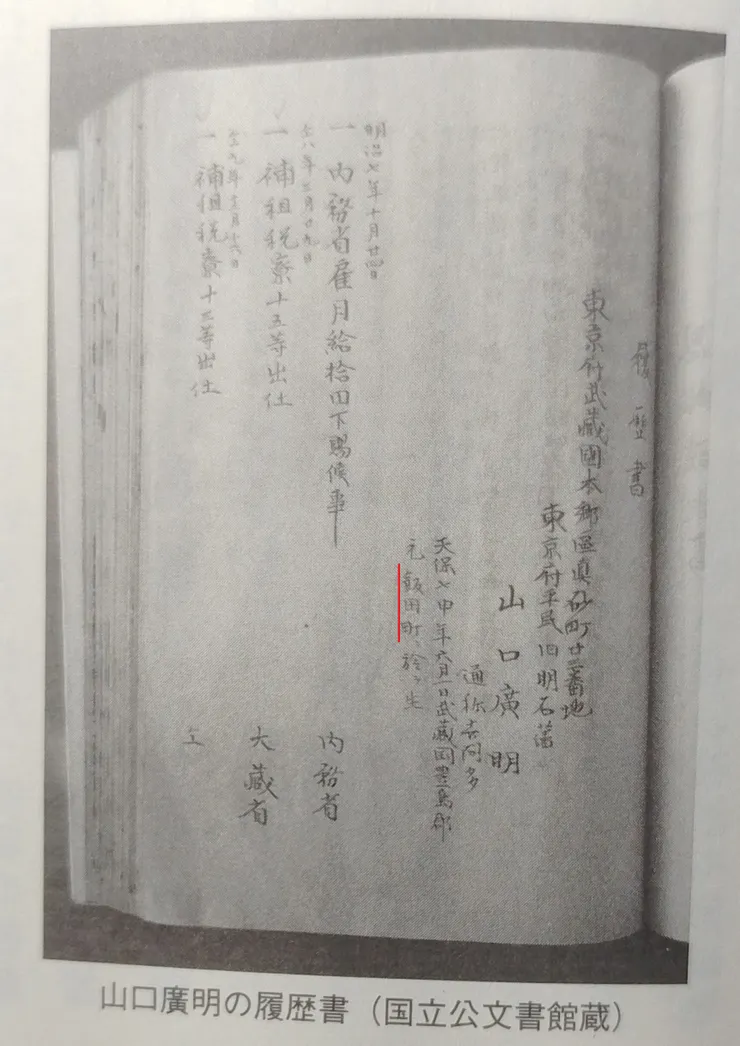 履歴書
東京府武蔵國本郷區真砂町廿三番地
東京府平民旧明石藩
山口廣明
通称吉同多
天保七申年六月一日武蔵国豊島郡
元飯田町ニ於テ生
明治七年十月廿四日
一 内務省雇月給拾四下賜候事 内務省
仝八年三月廿九日
一 補租税寮十五等出仕 大蔵省
仝九年 月十六日
一 補租税寮十三等出仕 仝
山口廣明の履歴書（国立公文書館蔵）